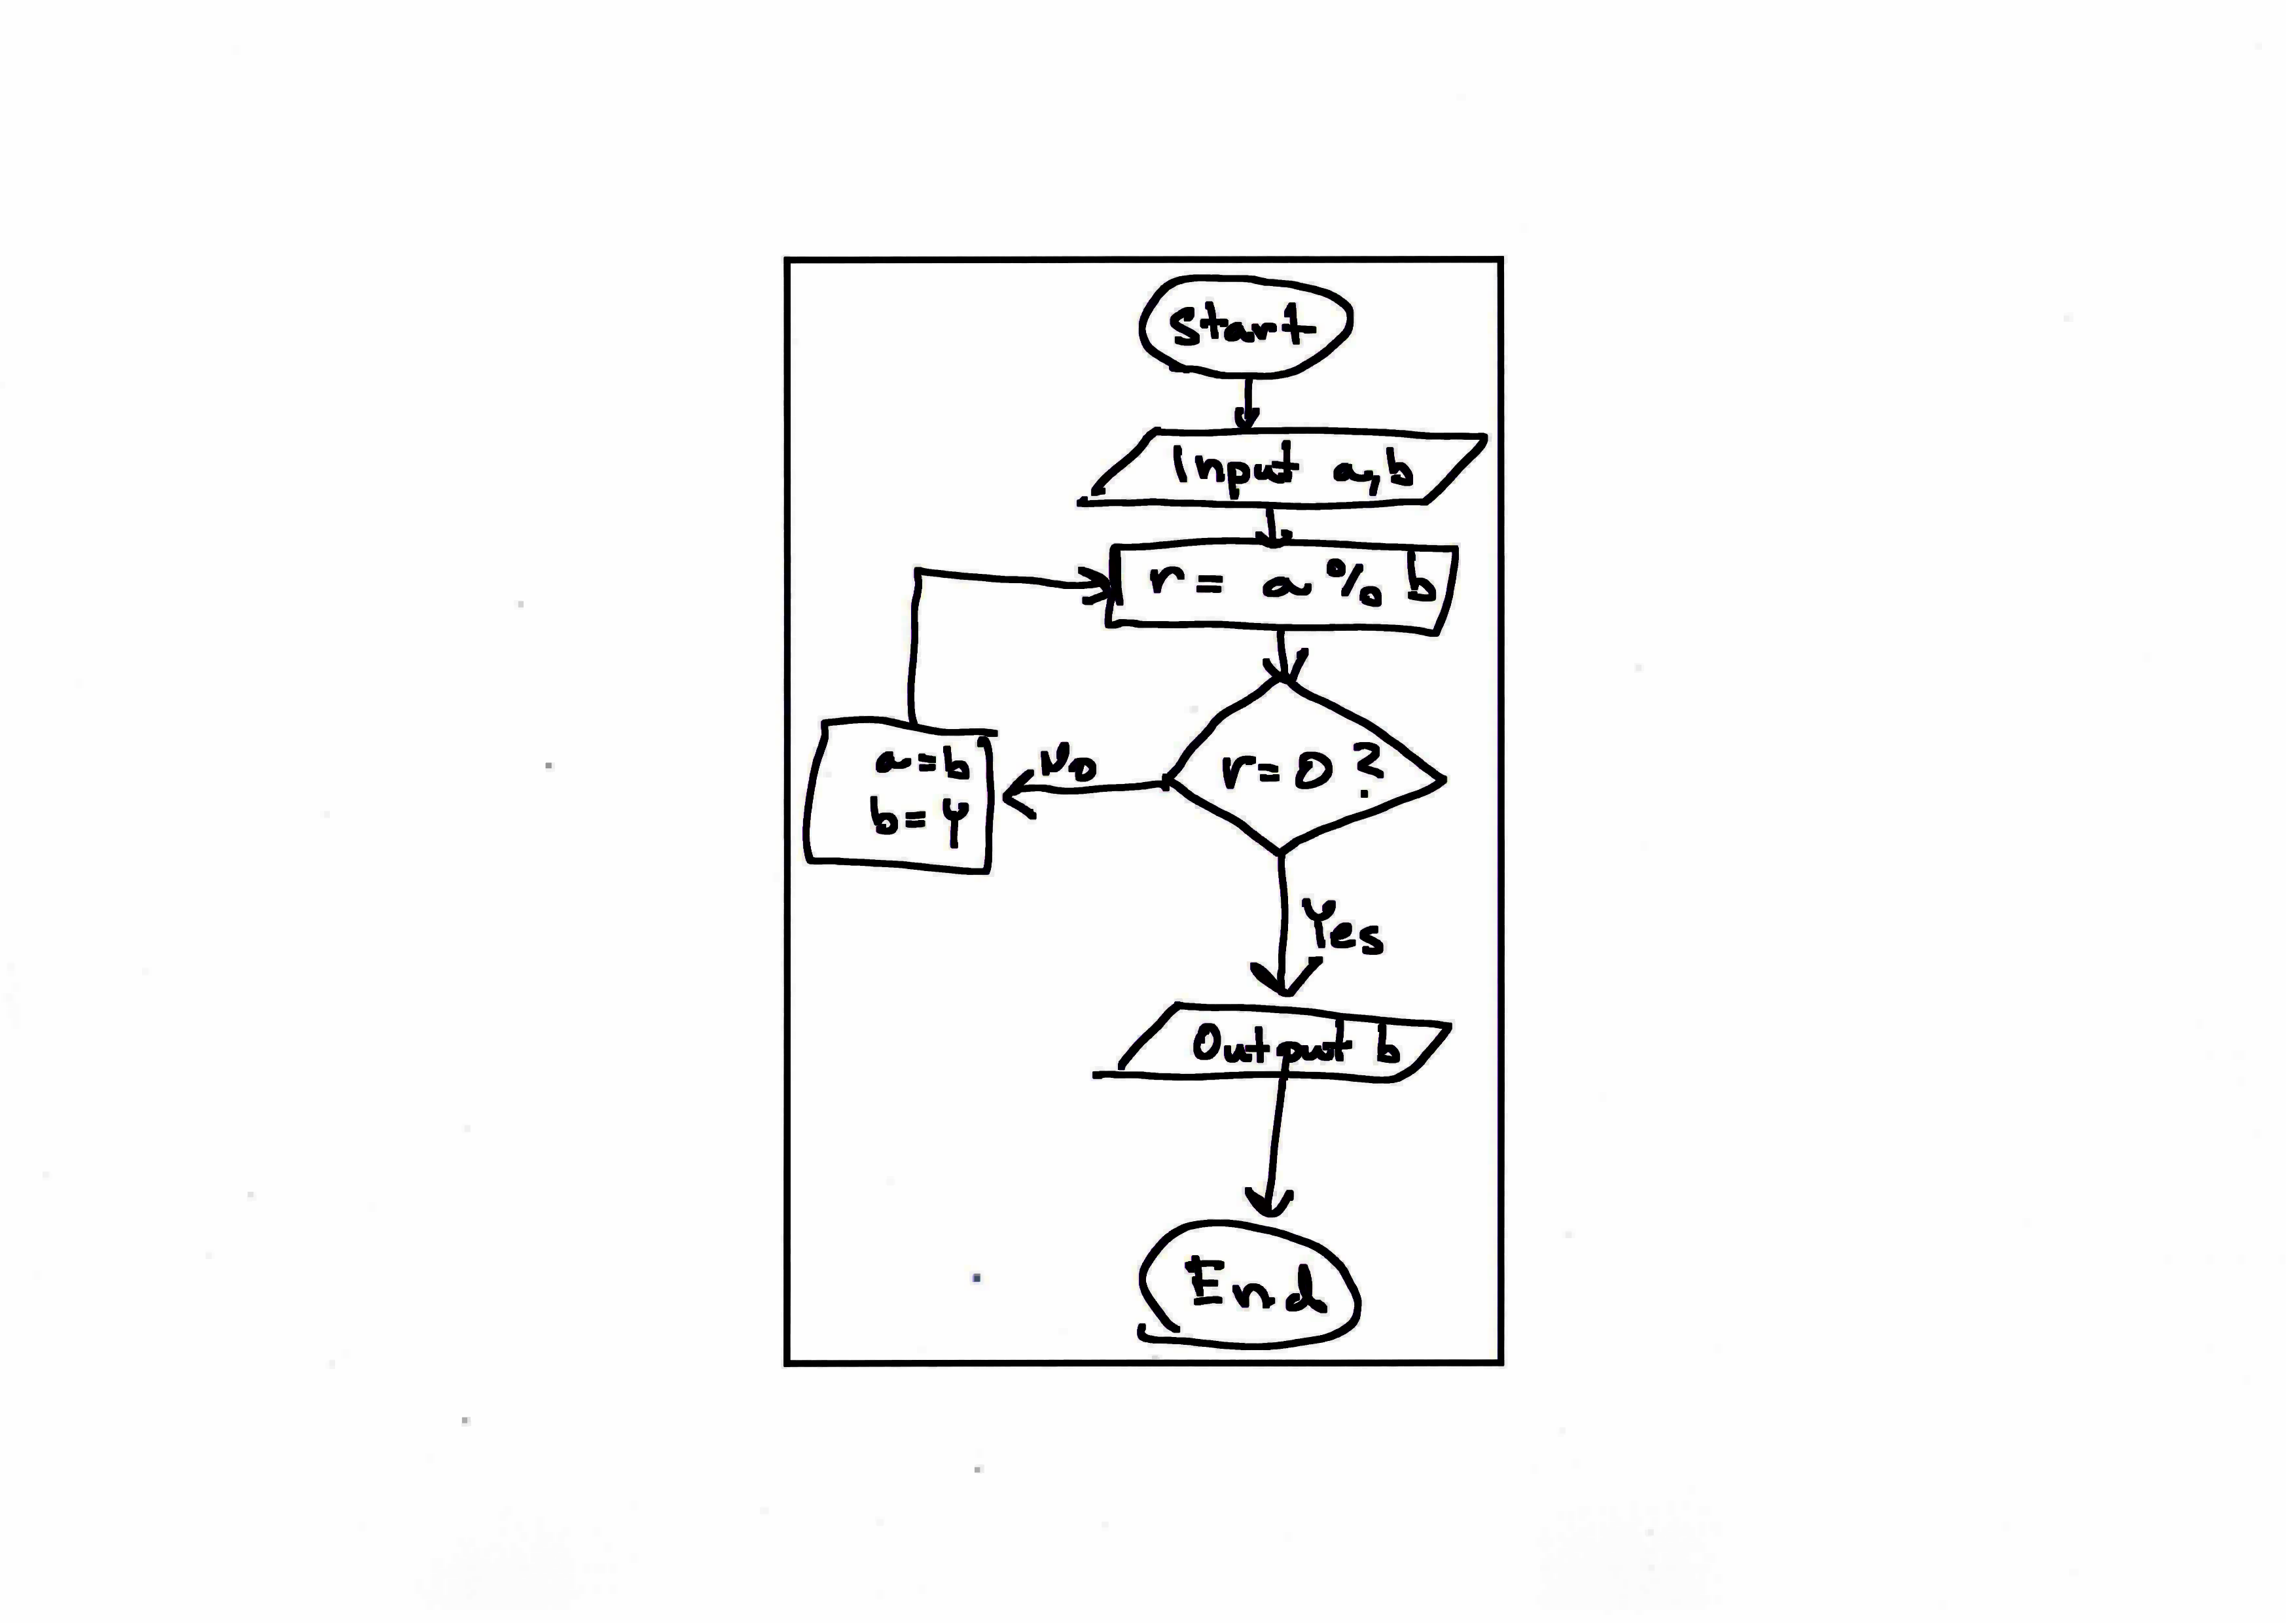 Start
Input a,b
r= a % b
r=0 ?
No
a=b
b=Y
Yes
Output b
End